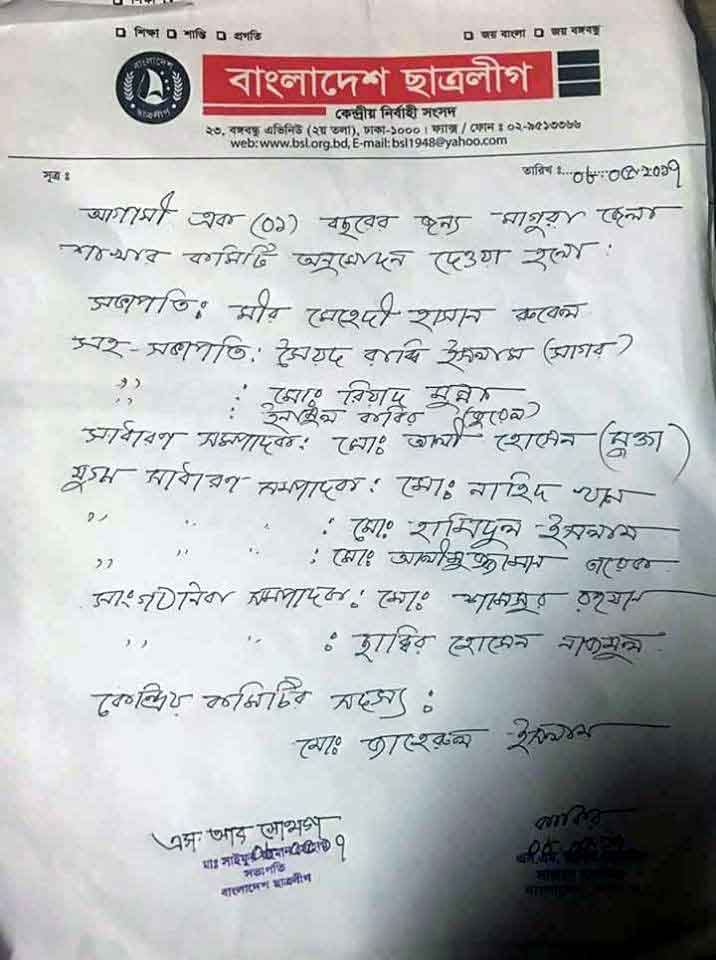 শিক্ষা শান্তি প্রগতি জয় বাংলা জয় বঙ্গবন্ধু
বাংলাদেশ ছাত্রলীগ
বাংলাদেশ ছাত্রলীগ
কেন্দ্রীয় নির্বাহী সংসদ
২৩, বঙ্গবন্ধু এভিনিউ (২য় তলা), ঢাকা-১০০০। ফ্যাক্স / ফোন : ০২-৯৫১৩৩৬৬
web: www.bsl.org.bd, E-mail: bsl1948@yahoo.com
সূত্র : তারিখ :
আগামী এক (০১) বছরের জন্য মাগুরা জেলা
শাখার কমিটি অনুমোদন দেওয়া হলো :
সভাপতি: মীর মেহেদী হাসান রুবেল
সহ-সভাপতি: সৈয়দ রাব্বি ইসলাম (সাগর)
" : মোঃ রিয়াদ মুন্না
: কবির (জুয়েল)
সাধারণ সম্পাদক: মোঃ আলী হোসেন (মুক্তা)
যুগ্ম সাধারণ সম্পাদক: মোঃ নাহিদ খান
" " " : মোঃ হামিদুল ইসলাম
" " " : মোঃ
সাংগঠনিক সম্পাদক: মোঃ রহমান
" " : হোসেন নাজমুল
কেন্দ্রিয় কমিটির সদস্য :
মোঃ জাহেরুল ইসলাম
এস আর সোহাগ জাকির
মোঃ সাইফুর রহমান সোহাগ
সভাপতি
বাংলাদেশ ছাত্রলীগ